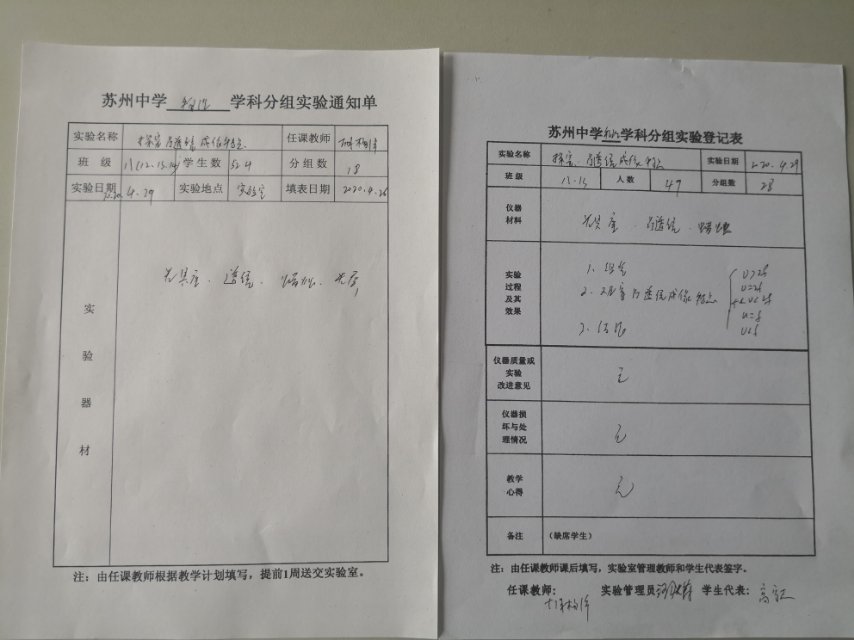 苏州中学 物理 学科分组实验通知单
实验名称 探究凸透镜成像特点 任课教师
班 级 学生数 分组数 18
实验日期 2020.4.29 实验地点 实验室 填表日期 2020.4.26
实验器材
光具座、透镜、蜡烛、光屏
注：由任课教师根据教学计划填写，提前1周送交实验室。
苏州中学 物理 学科分组实验登记表
实验名称 探究凸透镜成像特点 实验日期 2020.4.29
班 级 人数 47 分组数 28
仪器材料 光具座、凸透镜、蜡烛
实验过程及其效果
1、组装
2、探究凸透镜成像特点
u>2f
u=2f
f<u<2f
u=f
u<f
3、结论
仪器质量或实验改进意见 无
仪器损坏与处理情况 无
教学心得 无
备注 (缺席学生)
注：由任课教师课后填写，实验室管理教师和学生代表签字。
任课教师： 实验管理员 学生代表：